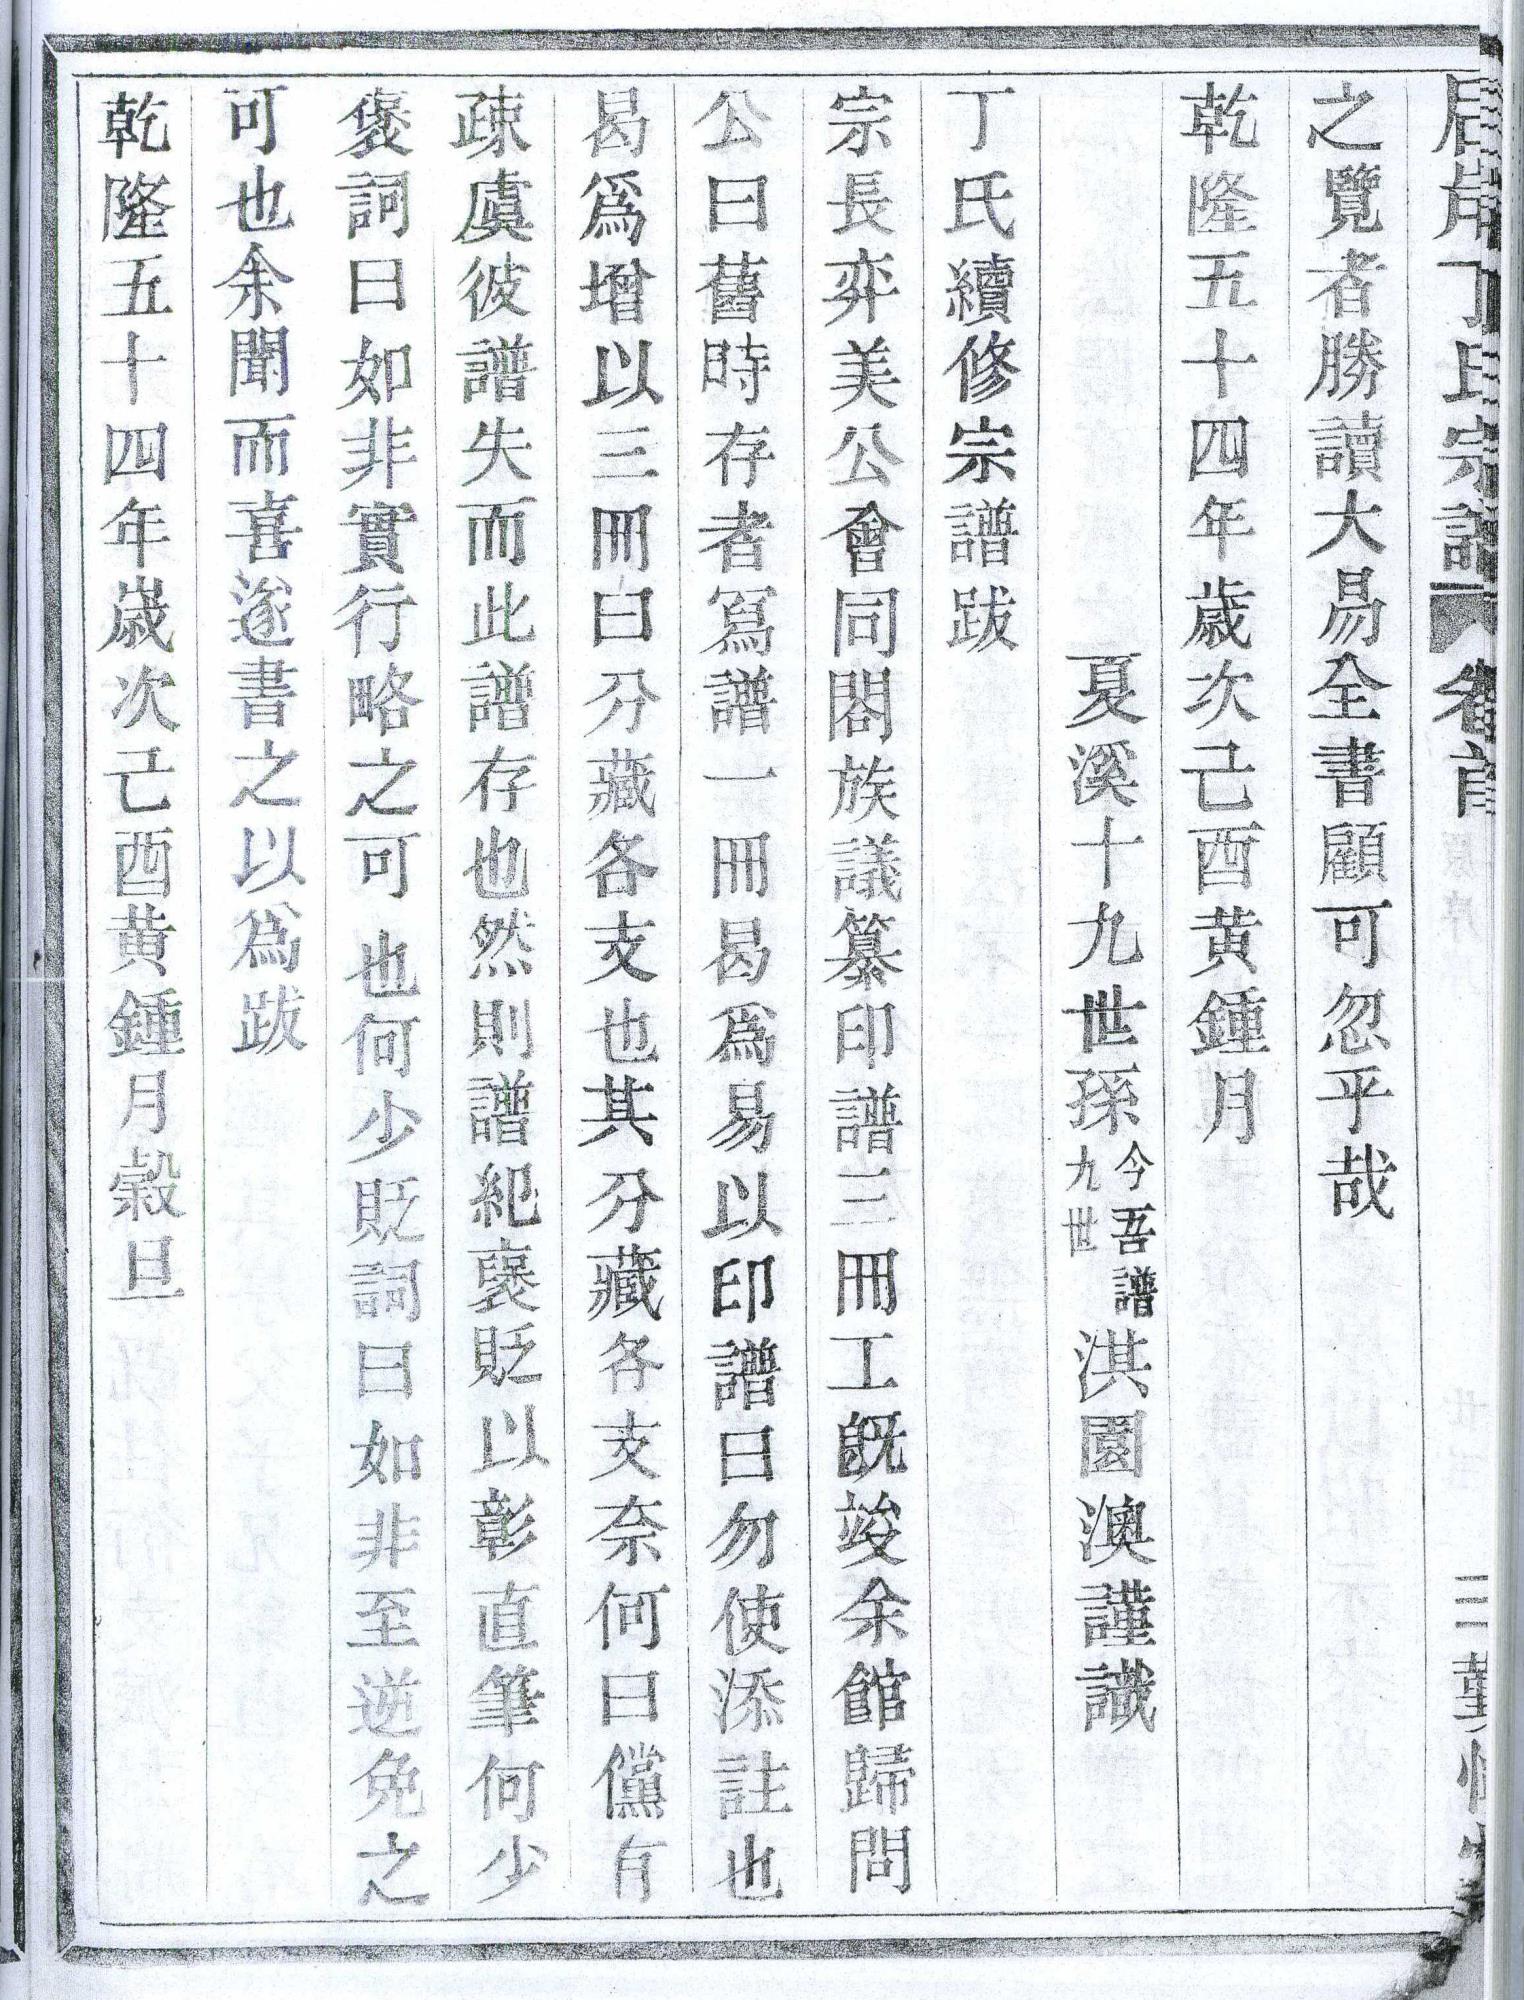 丁氏宗譜 卷首
之覽者勝讀大易全書顧可忽乎哉
乾隆五十四年歲次己酉黃鍾月
夏溪十九世孫今吾譜九世淇園澳謹識
丁氏續修宗譜跋
宗長弈美公會同閤族議纂印譜三冊工旣竣余館歸問
公曰舊時存者寫譜一冊曷爲易以印譜曰勿使添註也
曷爲增以三冊曰分藏各支也其分藏各支奈何曰儻有
疎虞彼譜失而此譜存也然則譜紀褒貶以彰直筆何少
褒詞曰如非實行略之可也何少貶詞曰如非至逆免之
可也余聞而喜遂書之以爲跋
乾隆五十四年歲次己酉黃鍾月榖旦